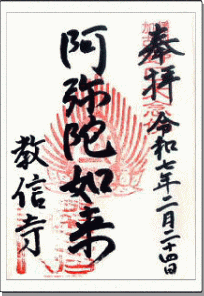 奉拝
令和七年二月二十四日
阿弥陀如来
教信寺